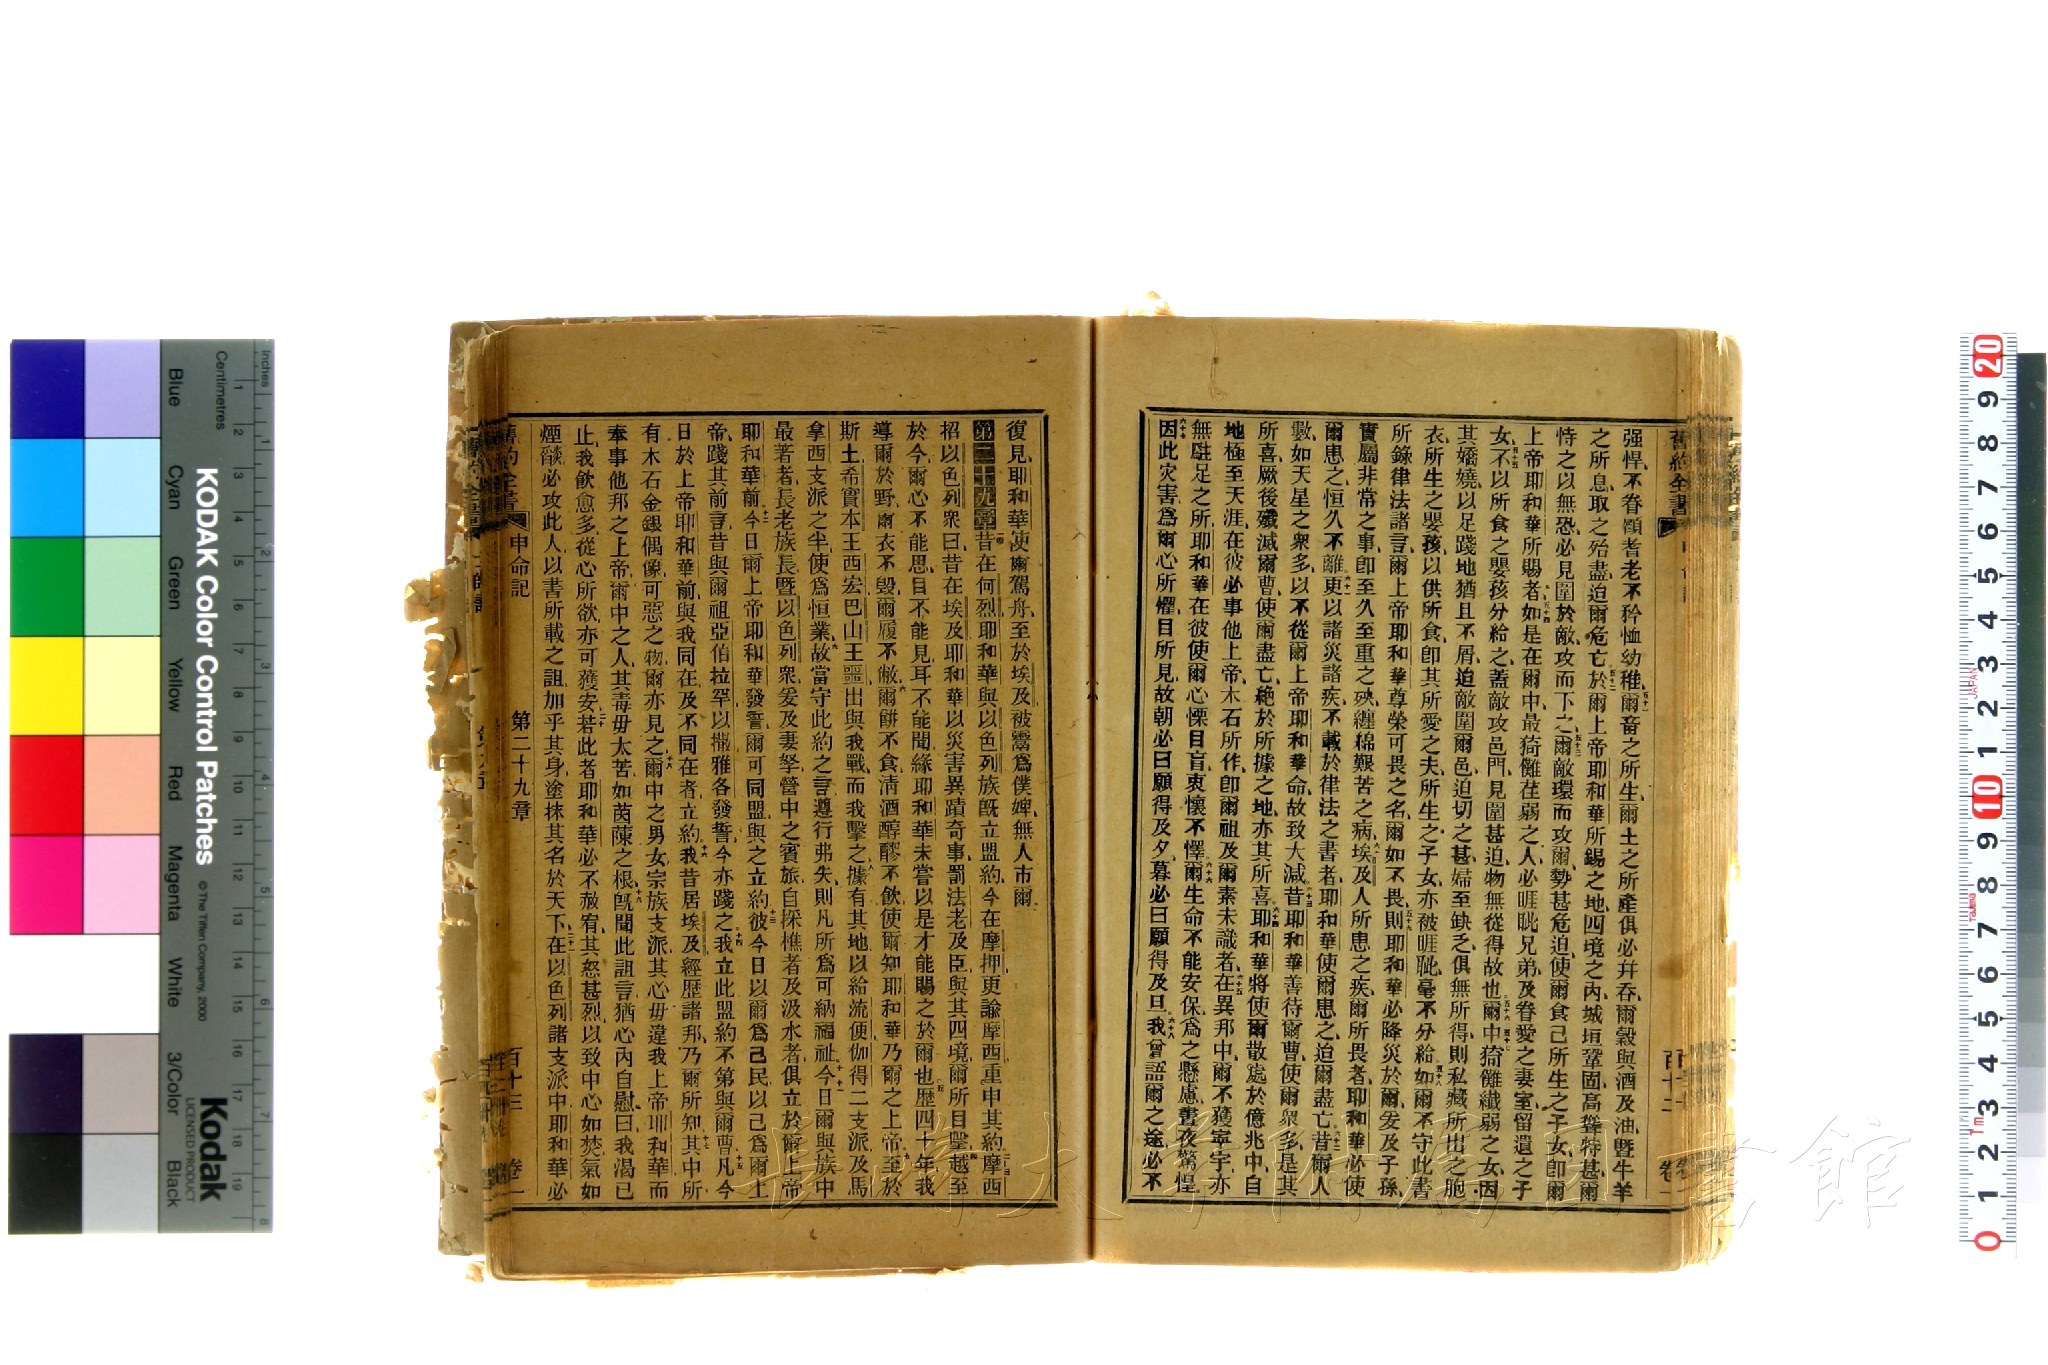 强悍不眷顧耆老不矜恤幼稚爾畜之所生爾土之所產俱必幷吞爾穀與酒及油暨牛羊
之所息取之殆盡迫爾危亡於爾上帝耶和華所錫之地四境之內城垣鞏固高聳特甚爾
恃之以無恐必見圍於敵攻而下之爾敵環而攻爾勢甚危迫使爾食己所生之子女卽爾
上帝耶和華所賜者如是在爾中最猗儺荏弱之人必睚眦兄弟及眷愛之妻室留遺之子
女不以所食之嬰孩分給之蓋敵攻邑門見圍甚迫物無從得故也爾中猗儺纖弱之女因
其嬌嬈以足踐地猶且不屑迫敵圍爾邑迫切之甚婦至缺乏俱無所得則私藏所出之胞
衣所生之嬰孩以供所食卽其所愛之夫所生之子女亦被睚眦毫不分給如爾不守此書
所錄律法諸言爾上帝耶和華尊榮可畏之名爾如不畏則耶和華必降災於爾爰及子孫
實屬非常之事卽至久至重之殃纏綿艱苦之病埃及人所患之疾爾所畏者耶和華必使
爾患之恒久不離更以諸災諸疾不載於律法之書者耶和華使爾患之迫爾盡亡昔爾人
數如天星之衆多以不從爾上帝耶和華命故致大減昔耶和華善待爾曹使爾衆多是其
所喜厥後殲滅爾曹使爾盡亡絶於所據之地亦其所喜耶和華將使爾散處於億兆中自
地極至天涯在彼必事他上帝木石所作卽爾祖及爾素未識者在異邦中爾不獲寧宇亦
無駐足之所耶和華在彼使爾心慄目盲衷懷不懌爾生命不能安保爲之懸慮晝夜驚惶
因此災害爲爾心所懼目所見故朝必曰願得及夕暮必曰願得及旦我曾語爾之途必不
復見耶和華使爾駕舟至於埃及被鬻爲僕婢無人市爾
第二十九章昔在何烈耶和華與以色列族旣立盟約今在摩押更諭摩西重申其約摩西
招以色列衆曰昔在埃及耶和華以災害異蹟奇事罰法老及臣與其四境爾所目擊越至
於今爾心不能思目不能見耳不能聞緣耶和華未嘗以是才能賜之於爾也歷四十年我
導爾於野爾衣不毀爾履不敝爾餅不食淸酒醇醪不飲使爾知耶和華乃爾之上帝至於
斯土希實本王西宏巴山王噩出與我戰而我擊之據有其地以給流便伽得二支派及馬
拿西支派之半使爲恒業故當守此約之言遵行弗失則凡所爲可納福祉今日爾與族中
最著者長老族長暨以色列衆爰及妻孥營中之賓旅自採樵者及汲水者俱立於爾上帝
耶和華前今日爾上帝耶和華發誓爾可同盟與之立約彼今日以爾爲己民以己爲爾上
帝踐其前言昔與爾祖亞伯拉罕以撒雅各發誓今亦踐之我立此盟約不第與爾曹凡今
日於上帝耶和華前與我同在及不同在者立約我昔居埃及經歷諸邦乃爾所知其中所
有木石金銀偶像可惡之物爾亦見之爾中之男女宗族支派其心毋違我上帝耶和華而
奉事他邦之上帝爾中之人其毒毋太苦如茵蔯之根旣聞此詛言猶心內自慰曰我渴已
止我飮愈多從心所欲亦可獲安若此者耶和華必不赦宥其怒甚烈以致中心如焚氣如
煙燄必攻此人以書所載之詛加乎其身塗抹其名於天下在以色列諸支派中耶和華必
舊約全書 申命記 第二十九章 百十三 卷一
長崎大學附屬圖書館
KODAK Color Control Patches
© The Tiffen Company, 2000
Kodak
LICENSED PRODUCT
Inches
Centimetres
Blue
Cyan
Green
Yellow
Red
Magenta
White
3/Color
Black